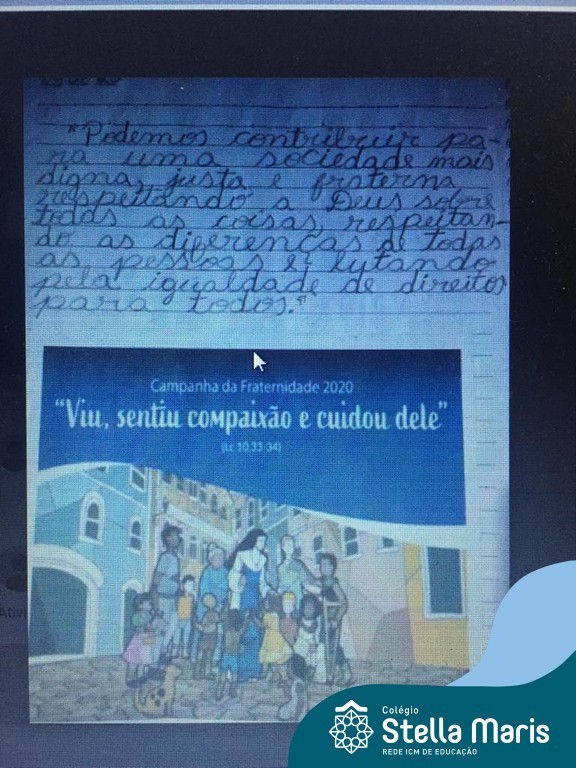 "Podemos contribuir pa-
ra uma sociedade mais
digna, justa e fraterna
respeitando a Deus sobre
todas as coisas, respeitan-
do as diferenças de todas
as pessoas e, lutando
pela igualdade de direitos
para todos."
Campanha da Fraternidade 2020
"Viu, sentiu compaixão e cuidou dele"
(Lc 10.33-34)
Colégio
Stella Maris
REDE ICM DE EDUCAÇÃO